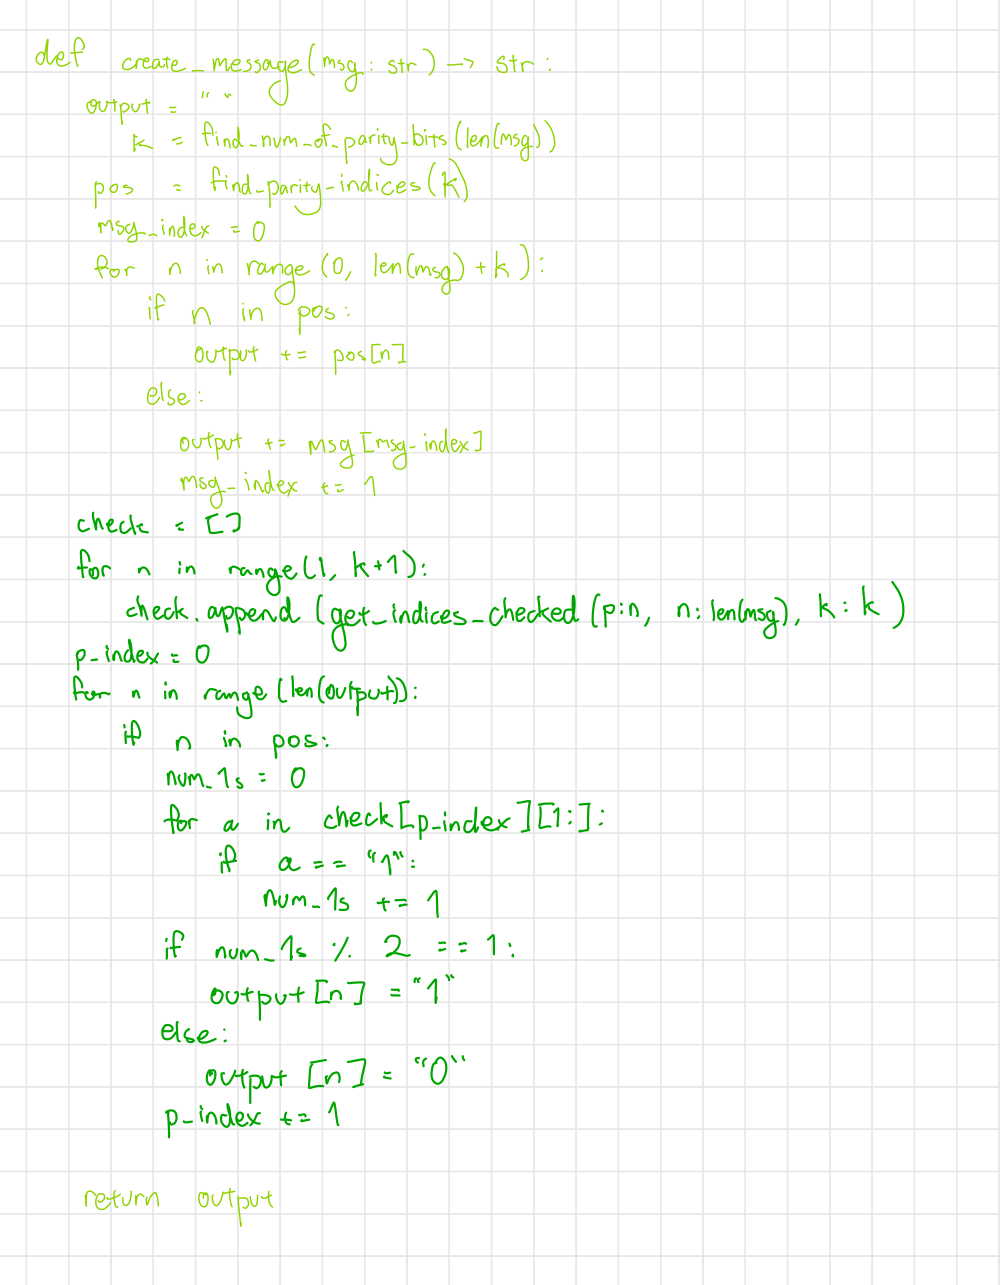 def create_message(msg: str) -> str:
output = " "
k = find_num_of_parity_bits(len(msg))
pos = find_parity_indices(k)
msg_index = 0
for n in range (0, len(msg) + k ):
if n in pos:
output += pos[n]
else:
output += msg[msg_index]
msg_index += 1
check = []
for n in range(1, k+1):
check.append (get_indices_checked (p:n, n:len(msg), k: k )
p_index = 0
for n in range (len(output)):
if n in pos:
num_1s = 0
for a in check[p_index][1:]:
if a == "1":
num_1s += 1
if num_1s % 2 == 1:
output [n] = "1"
else:
output [n] = "0"
p_index += 1
return output